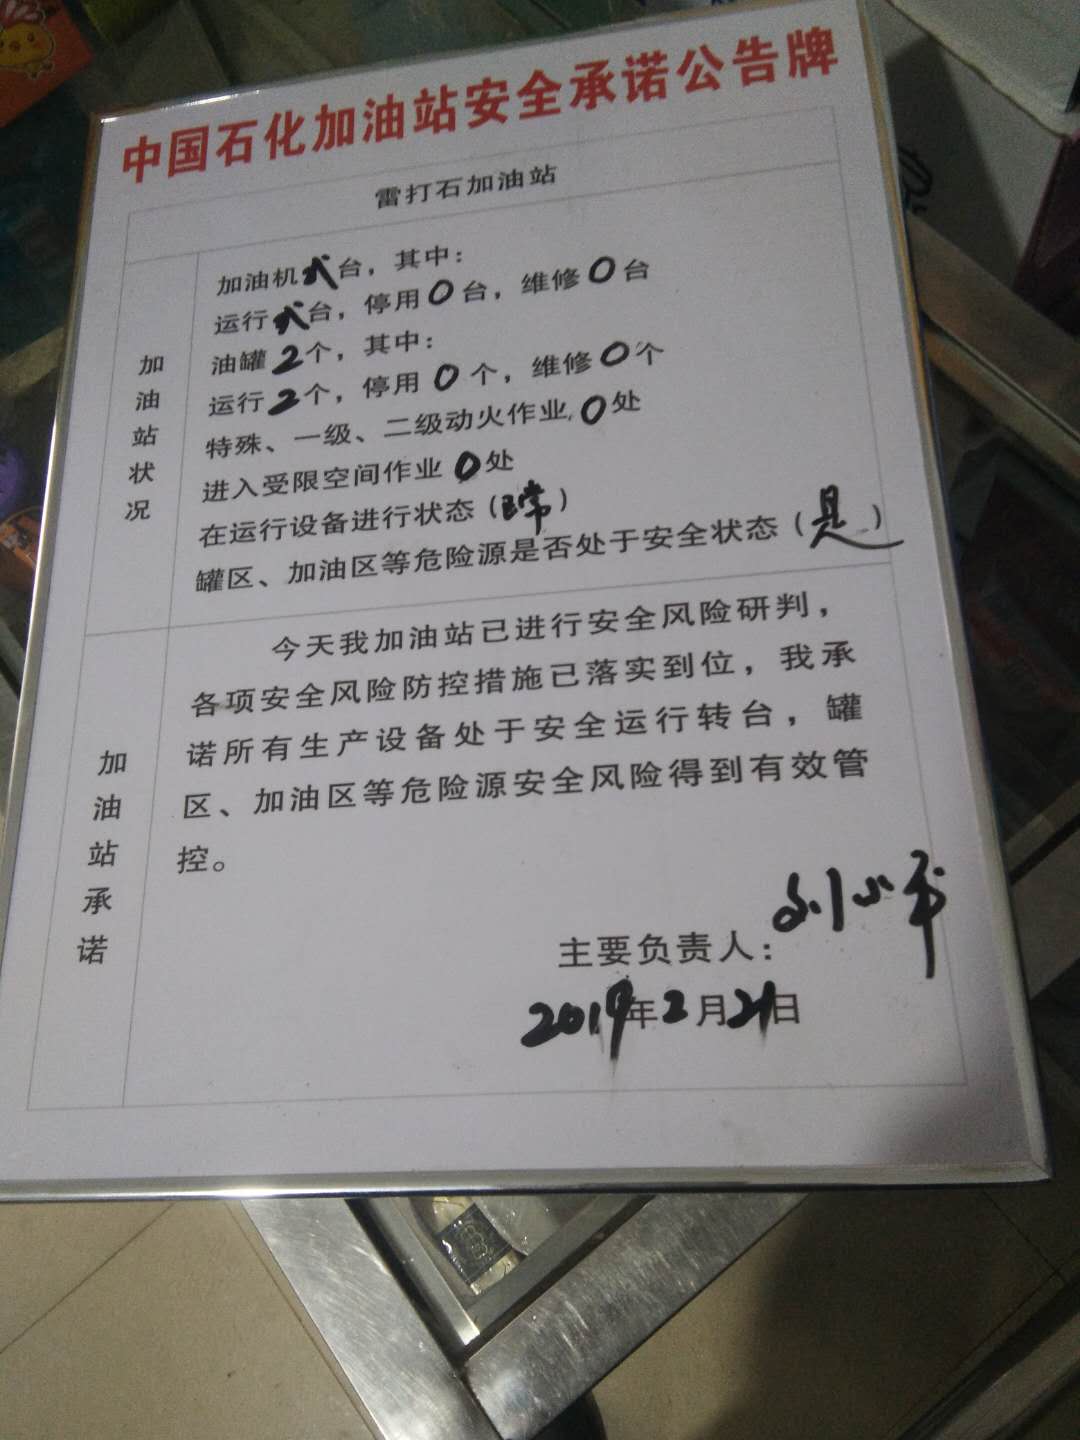 中国石化加油站安全承诺公告牌
雷打石加油站
加油站状况
加油机弍台，其中：
运行弍台，停用0台，维修0台
油罐2个，其中：
运行2个，停用0个，维修0个
特殊、一级、二级动火作业0处
进入受限空间作业0处
在运行设备进行状态（正常）
罐区、加油区等危险源是否处于安全状态（是）
加油站承诺
今天我加油站已进行安全风险研判，
各项安全风险防控措施已落实到位，我承
诺所有生产设备处于安全运行转台，罐
区、加油区等危险源安全风险得到有效管
控。
主要负责人：刘小平
2019年2月21日